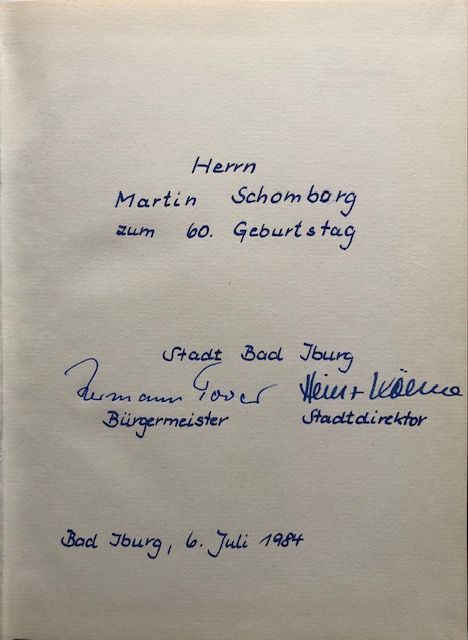 Herrn
Martin Schomborg
zum 60. Geburtstag
Stadt Bad Iburg
Hermann Heinz
Bürgermeister Stadtdirektor
Bad Iburg, 6. Juli 1984